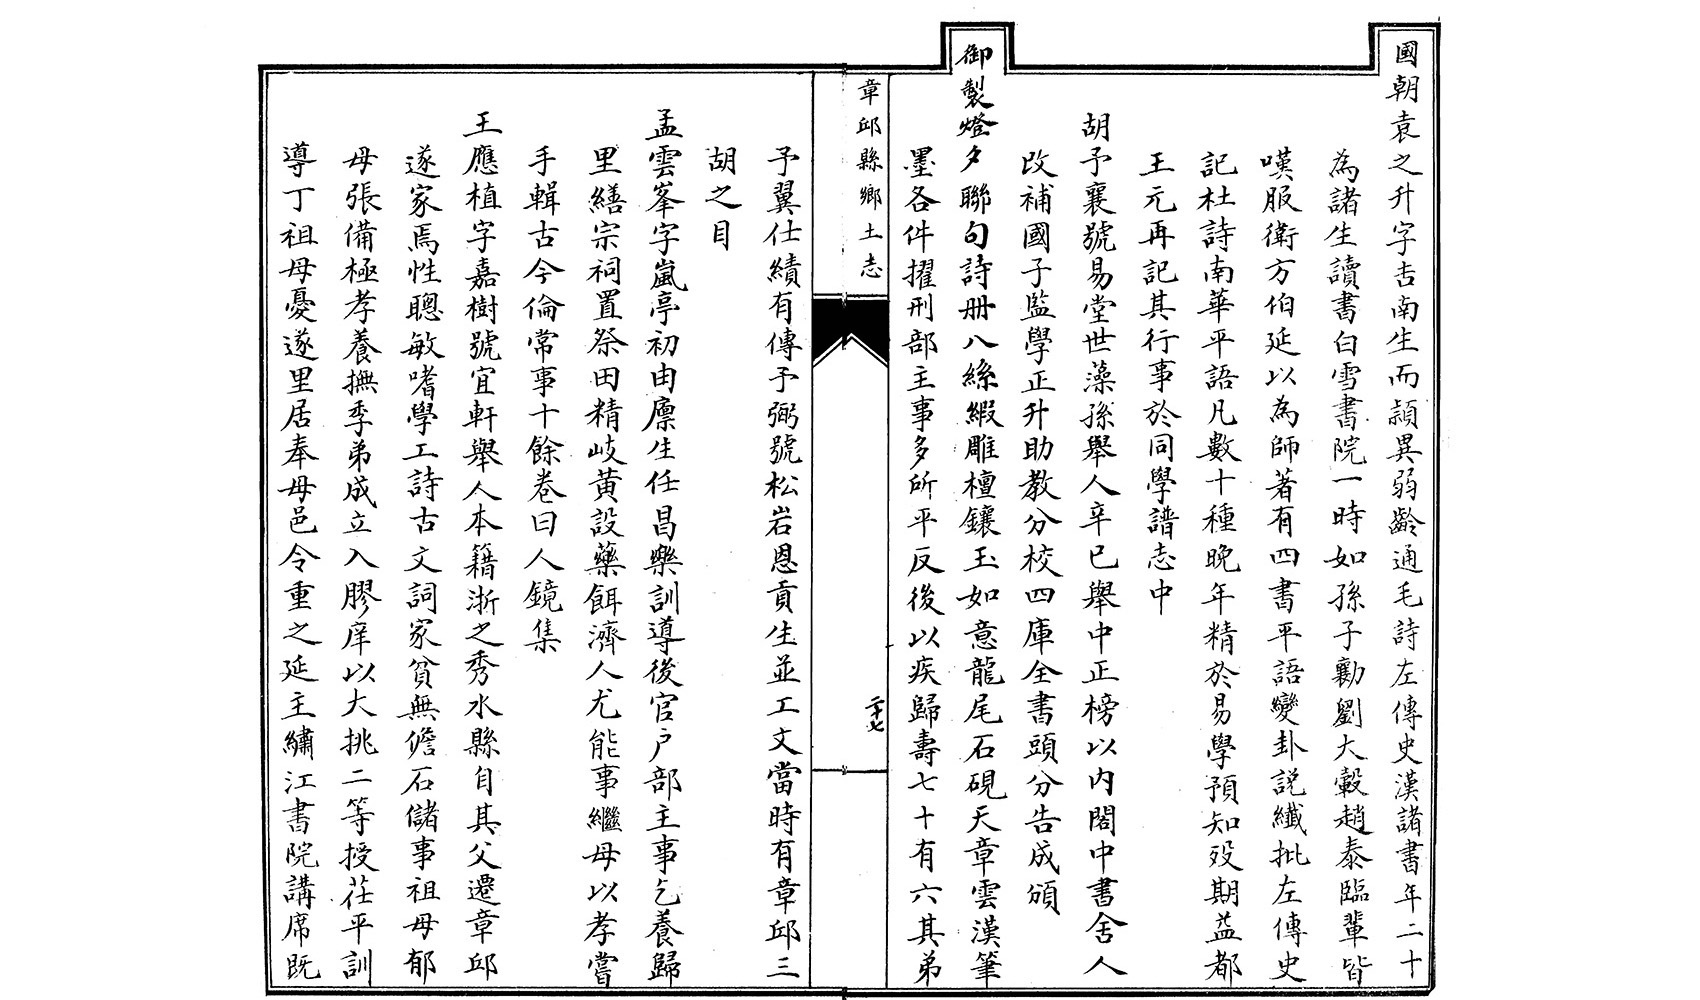 國朝袁之升字吉南生而頴異弱齡通毛詩左傳史漢諸書年二十
為諸生讀書白雪書院一時如孫子勷劉大轂趙泰臨輩皆
嘆服衛方伯延以為師著有四書平語變卦説纖批左傳史
記杜詩南華平語凡數十種晚年精於易學預知殁期益都
王元再記其行事於同學譜志中
胡予襄號易堂世藻孫舉人辛巳舉中正榜以内閣中書舍人
改補國子監學正升助教分校四庫全書頭分告成頒
御製燈夕聯句詩册八絲緞雕檀鑲玉如意龍尾石硯天章雲漢筆
墨各件擢刑部主事多所平反後以疾歸壽七十有六其弟
章邱縣鄉土志
二十七
予翼仕績有傳予弼號松岩恩貢生並工文當時有章邱三
胡之目
孟雲峯字嵐亭初由廪生任昌樂訓導後官户部主事乞養歸
里繕宗祠置祭田精岐黄設藥餌濟人尤能事繼母以孝嘗
手輯古今倫常事十餘卷曰人鏡集
王應植字嘉樹號宜軒舉人本籍浙之秀水縣自其父遷章邱
遂家焉性聰敏嗜學工詩古文詞家貧無儋石儲事祖母郁
母張備極孝養撫季弟成立入膠庠以大挑二等授茌平訓
導丁祖母憂遂里居奉母邑令重之延主繡江書院講席既